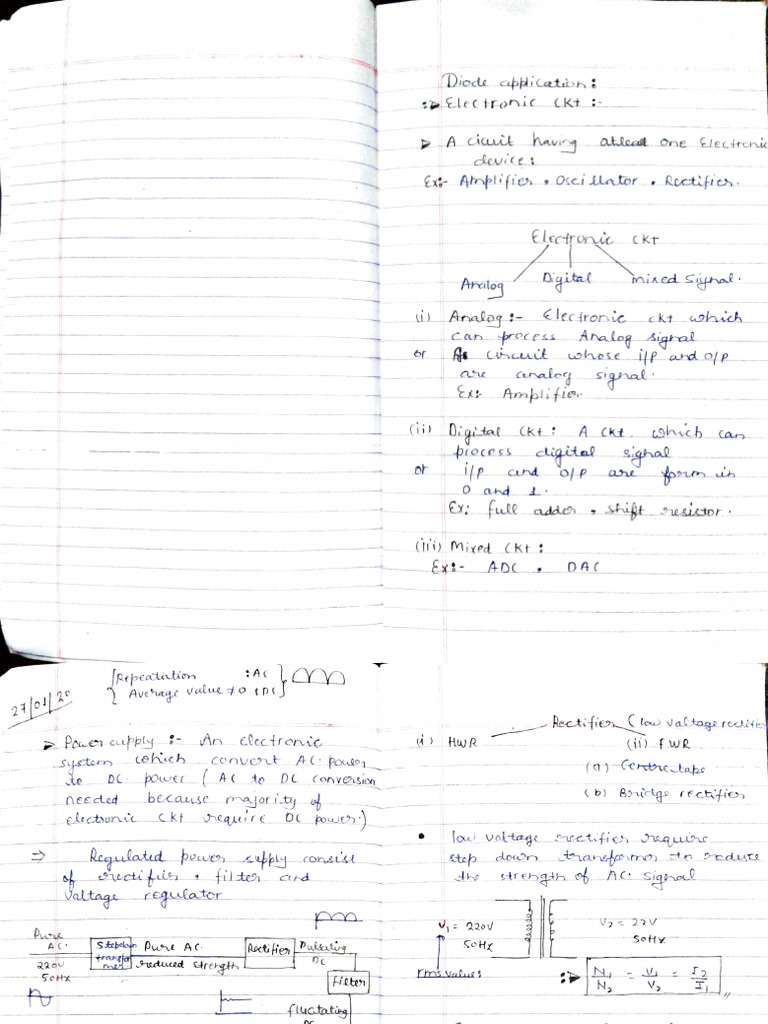 Diode application:
Electronic CKt :-
A cicuit having atleast one Electronic
device:
Ex:- Amplifier . Oscillator . Rectifier.
Electronic CKt
Analog Digital mixed Signal.
(i) Analog :- Electronic ckt which
can process Analog signal
or A circuit whose i/p and o/p
are analog signal.
Ex: Amplifier
(ii) Digital CKt : A CKt which can
process digital signal
or i/p and o/p are form in
0 and 1.
Ex: full adder . shift resistor.
(iii) Mixed CKt :
Ex:- ADC . DAC
27/01/20
Repeatation : AC
Average value ≠ 0 : DC
Power supply :- An electronic
system which convert AC power
to DC power ( AC to DC conversion
needed because majority of
electronic CKt require DC power.)
⇒ Regulated power supply consist
of rectifier . filter and
voltage regulator
Pure
AC.
220V
50HX
Stepdown
transformer
Pure AC.
reduced strength
Rectifier
Pulsating
DC
Filter
fluctating
DC
Rectifier ( low voltage rectifie
(i) HWR (ii) FWR
(a) Centre tape
(b) Bridge rectifier
• low voltage rectifier require
step down transformer to reduce
the strength of AC signal
V₁ = 220V
50HX
V₂ = 22V
50HX
rms value:
N₁/N₂ = V₁/V₂ = I₂/I₁